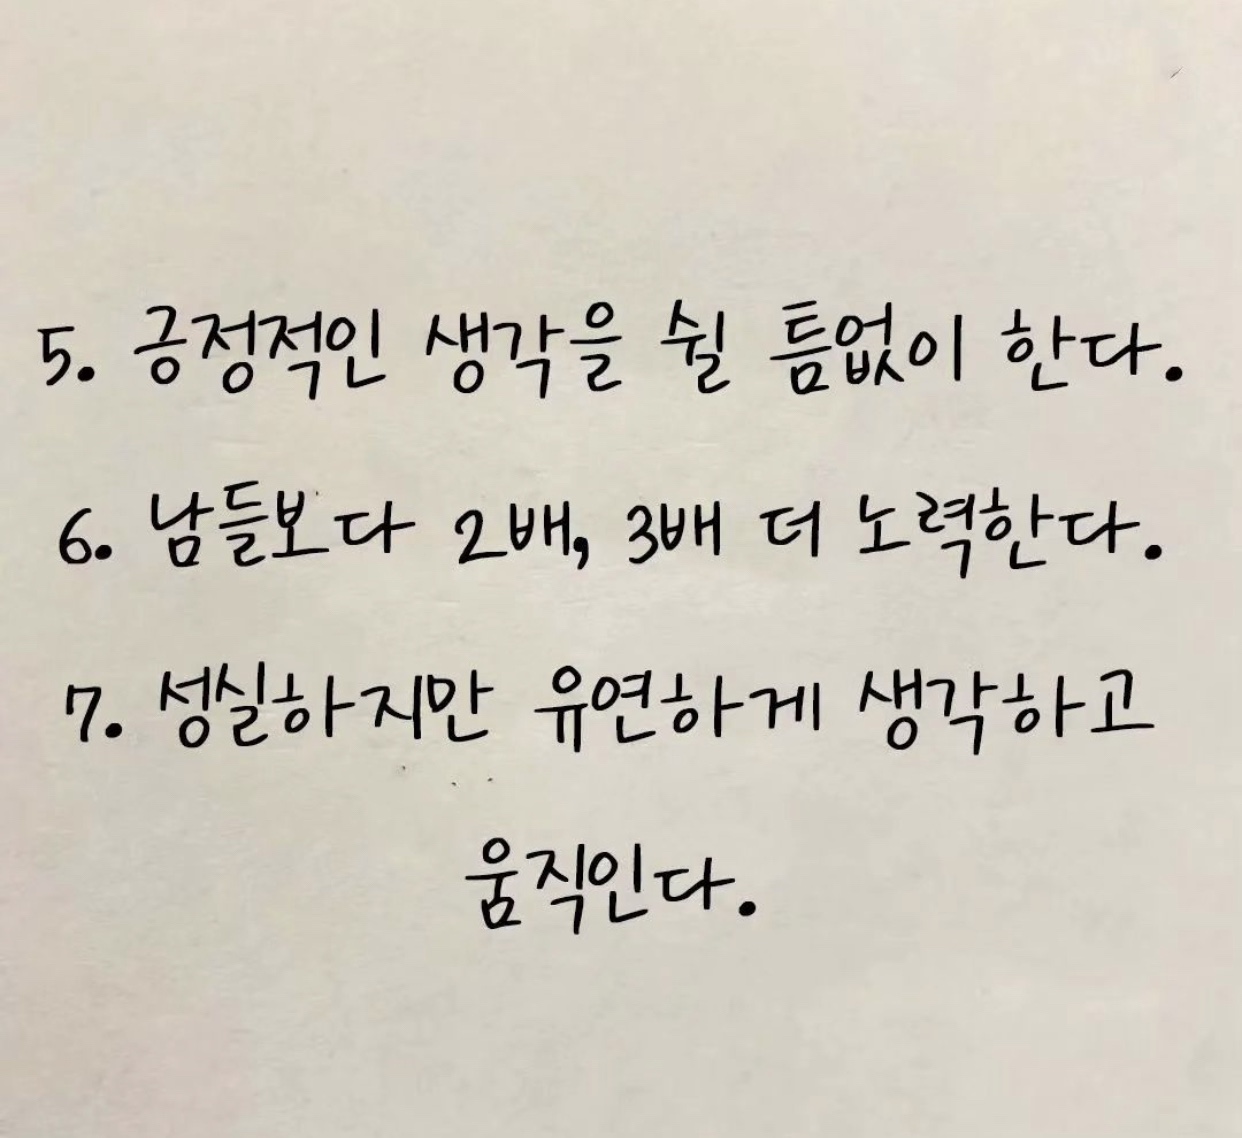 5. 긍정적인 생각을 쉴 틈없이 한다.
6. 남들보다 2배, 3배 더 노력한다.
7. 성실하지만 유연하게 생각하고
움직인다.